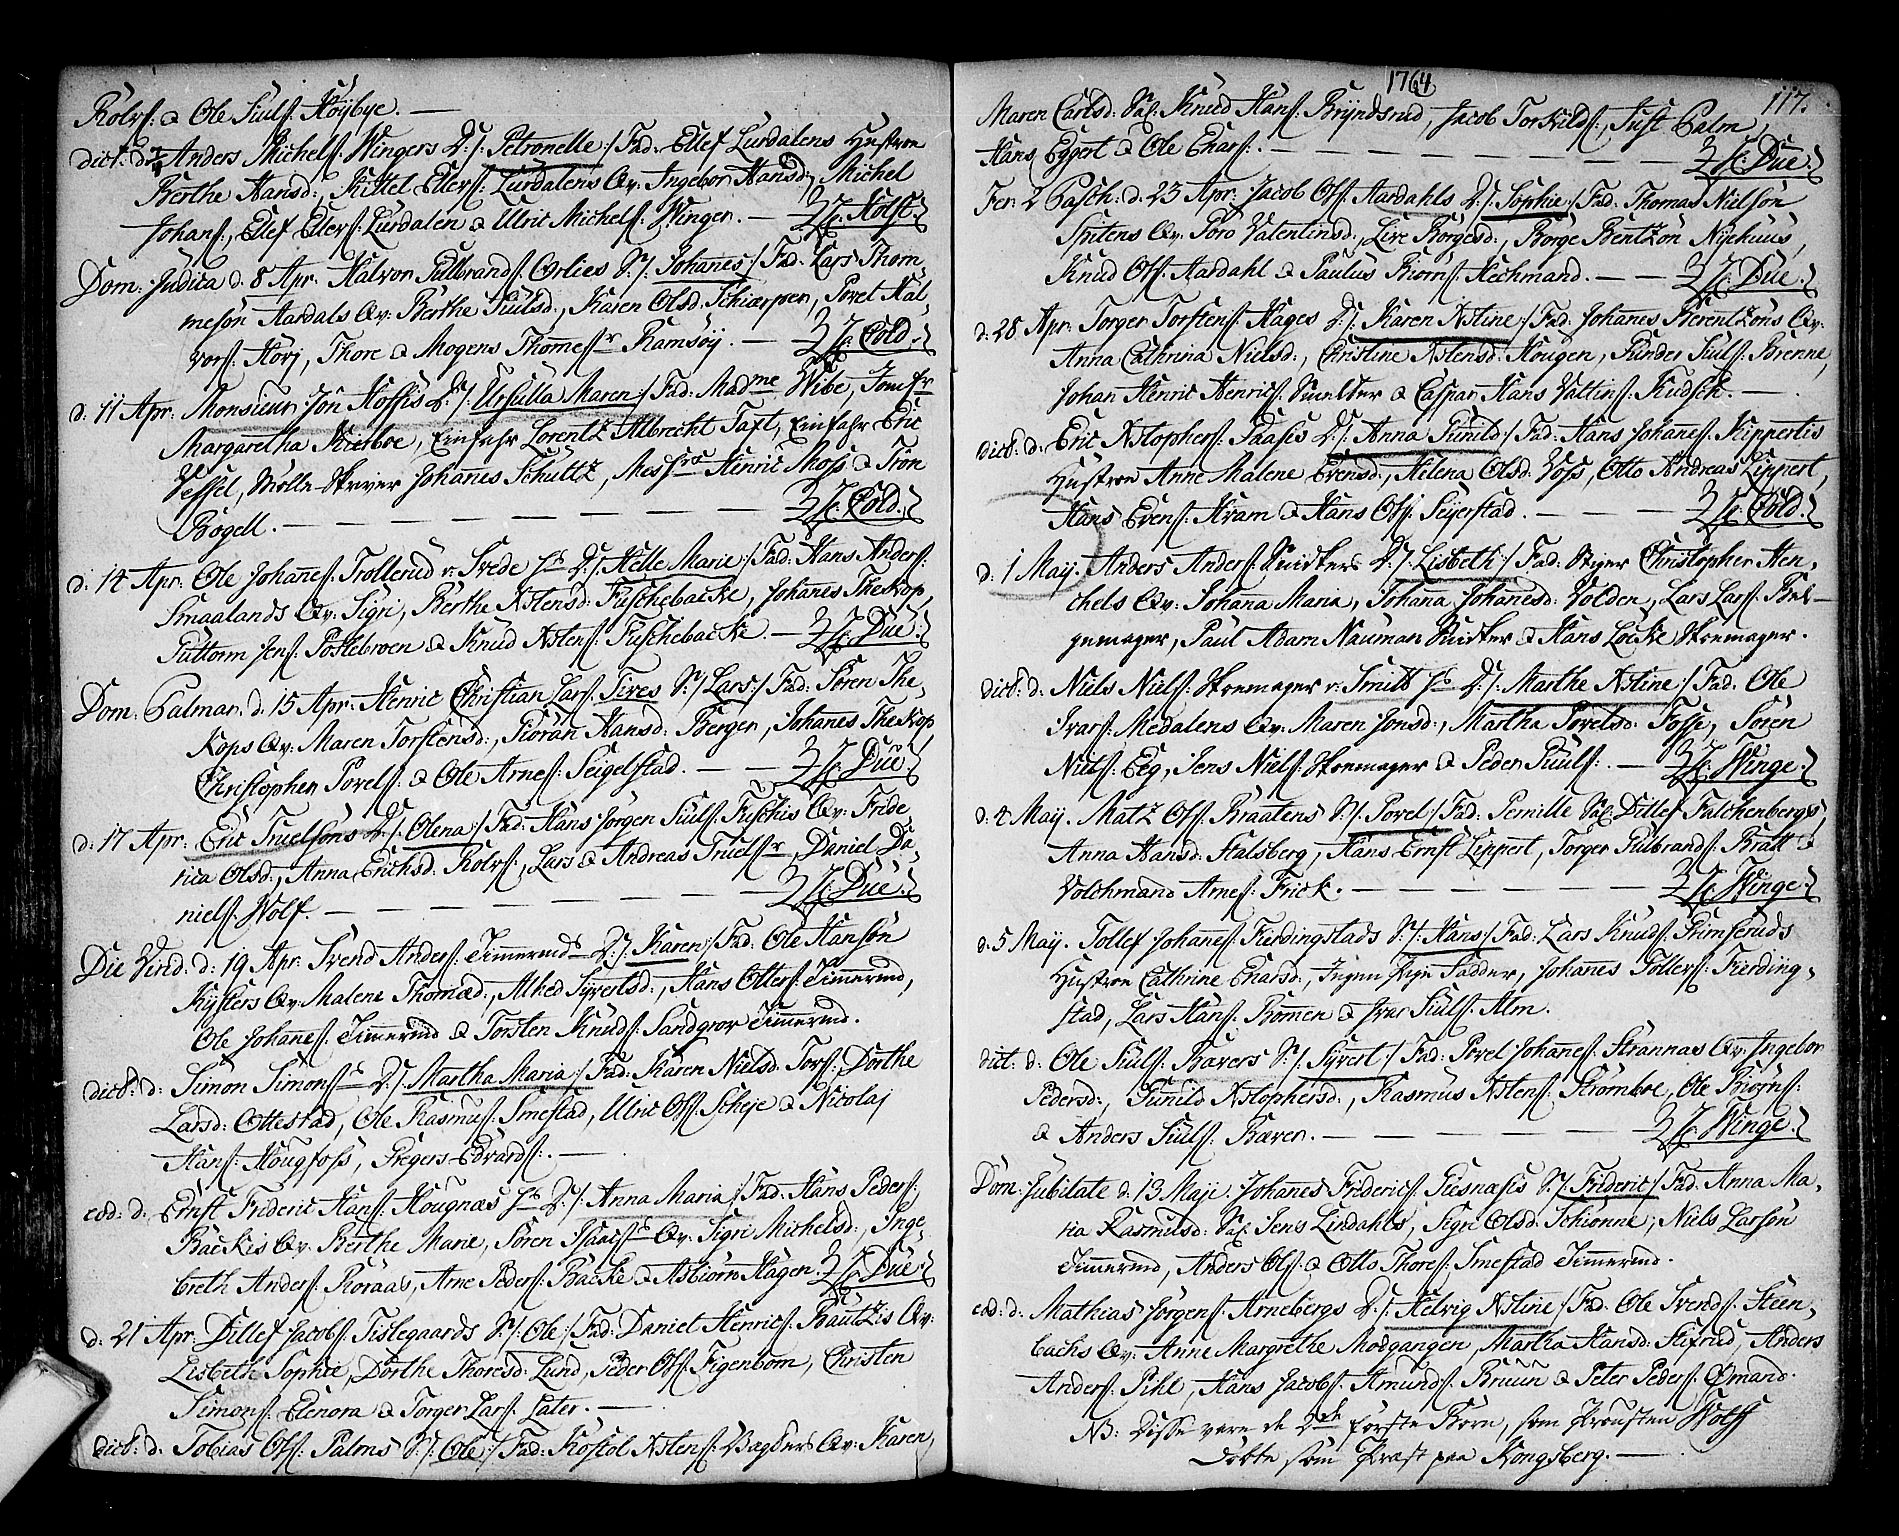 Rolvs: & Ole Siuls: Høybye. —
dict: d: Anders Michels: Wingers D:/: Petronelle :/ Fad: Ellef Lurdalens Hustroe
Berthe Hansd:, Kittel Ellefs: Lurdalens Qv: Ingebor Hansd:, Michel
Johans:, Ellef Ellefs: Lurdalen & Ulric Michels: Winger. — Hr: Holst.
Dom: Judica d. 8 Apr: Halvor Gulbrands: Orlies S:/: Johanes :/ Fad: Lars Thom
mesøn Aardals Qv: Berthe Siulsd:, Karen Olsd: Schiærpen, Povel Hal-
vors: Hovj, Thore & Mogens Thomess:r Ramsøy. — Hr: Cold.
d: 11 Apr: Monsieur Jon Hoffis D:/: Ursulla Maren :/ Fad: Madme Wibe, Jomfr
Margaretha Krieboe, Einfahr Lorentz Albrecht Taft, Einfahr Eric
Vessel, Mølle-Skriver Johanes Schultz, Messrs Henric Moss & Trøn
Bogell. — — — — — — — — Hr: Cold.
d: 14 Apr: Ole Johanes: Trollerud v: Svede Hs: D:/: Helle Marie :/ Fad: Hans Anders:
Smaalands Qv: Sigri, Berthe Astensd: Fuschebacke, Johanes Theskop,
Guttorm Jens: Postebroen & Knud Astens: Fuschebacke. — Hr: Due.
Dom: Palmar. d. 15 Apr: Henric Christian Lars: Tires S:/: Lars :/ Fad: Søren The-
kops Qv: Maren Torstensd:, Giøran Hansd: Berger, Johanes Theskop,
Christopher Povels: & Ole Arnes: Seigelstad. — — Hr: Due.
d: 17 Apr: Eric Truelsøns D:/: Olena :/ Fad: Hans Jørgen Siuls: Fuschis Qv: Fride-
rica Olsd:, Anna Erichsd: Rolvs:, Lars & Andreas Truels:r, Daniel Da-
niels: Wolf. — — — — — — — Hr: Due.
Die Virid: d: 19 Apr: Svend Anders: Timerm: D:/: Karen :/ Fad: Ole Hansøn
Kysters Qv: Malene Thomæd:, Alhed Syvertsd:, Hans Otters: Timermd,
Ole Johanes: Timermd & Torsten Knuds: Sandgrov Timermd.
dict: d: Simon Simons: D:/: Martha Maria :/ Fad: Karen Nielsd: Torf:, Dorthe
Larsd: Ottestad, Ole Rasmus: Smestad, Ulric Ols: Scheje & Nicolaj
Hans: Hougfoss, Gregers Edvards:. —
eod: d: Ernst Frideric Hans: Hougnæs Hs: D:/: Anna Maria :/ Fad: Hans Peders:
Backis Qv: Berthe Marie, Søren Isaacs: Qv: Sigri Michelsd:, Inge-
breth Anders: Røraas, Arne Peders: Backe & Asbiørn Hagen. Hr: Due.
d: 21 Apr: Ditlef Jacobs: Gislegaards S:/: Ole :/ Fad: Daniel Henrics: Bautzis Qv:
Lisbeth Sophie, Dorthe Thoresd: Lund, Peder Ols: Figenborn, Christen
Simons: Elenora & Torger Lars: Later. —
dict: d: Tobias Ols: Palms S:/: Ole :/ Fad: Kostol Astens: Vagters Qv: Karen,
1764
117.
Maren Carlsd: Sal: Knud Hans: Bryndsrud, Jacob Torkilds:, Just Palm,
Hans Eggert & Ole Enars:. — — — — — — — Hr: Due.
Fer: 2 Pasch: d: 23 Apr: Jacob Ols: Aardahls D:/: Sophie :/ Fad: Thomas Nielsøn
Spitens Qv: Poro Valentinsd:, Live Børgesd:, Børge Bentzøn Nyehuus,
Knud Ols: Aardahl & Paulus Biørns: Heckmand. — — Hr: Due.
d: 28 Apr: Torger Torstens: Hages D:/: Karen Astine :/ Fad: Johanes Berentzøns Qv:
Anna Cathrina Nielsd:, Christine Astensd: Hougen, Gunder Siuls: Brenne,
Johan Henric Henrics: Smelter & Caspar Hans Vattin: Kudsch. —
dict: d: Eric Astophers: Faasis D:/: Anna Gunild :/ Fad: Hans Johanes: Kippertis
Hustroe Anne Malene Evensd:, Helena Olsd: Voss, Otto Andreas Lippert,
Hans Evens: Kram & Hans Ols: Seyerstad. — — Hr: Cold.
d: 1 Maij. Anders Anders: Snidkers D:/: Lisbeth :/ Fad: Stiger Christopher Hen-
chels Qv: Johana Maria, Johana Johanesd: Volden, Lars Lars: Bel-
gemager, Paul Adam Nauman Snidker & Hans Locke Skoemager.
dict: d: Niels Niels: Skoemager v: Smitt Hs: D:/: Marthe Astine :/ Fad: Ole
Ivars: Medalens Qv: Maren Jonsd:, Martha Povelsd: Fosse, Søren
Niels: Eeg, Jens Niels: Skoemager & Peder Guuls:. — Hr: Winge.
d: 4 Maij. Matz Ols: Braatens S:/: Povel :/ Fad: Pernille Sal: Ditlef Falckenbergs,
Anna Hansd: Stalsberg, Hans Ernst Lippert, Torger Gulbrands: Bratt &
Volckmand Arnes: Frick. — — — — — Hr: Winge.
d. 5 Maij. Tollef Johanes: Fierdingstads S:/: Hans :/ Fad: Lars Knuds: Grimseruds
Hustroe Cathrine Enarsd:, Inger Pige Sadder, Johanes Tollefs: Fierding-
stad, Lars Hans: Romen & Iver Siuls: Alm.
dict: d: Ole Siuls: Bævers S:/: Syvert :/ Fad: Povel Johanes: Strannas Qv: Ingebor
Pedersd:, Gunild Astophersd:, Rasmus Astens: Stromboe, Ole Biørns:
& Anders Siuls: Bæver. — — — — — Hr: Winge.
Dom: Jubilate d. 13 Maji. Johanes Frideric: Giesnæsis S:/: Frideric :/ Fad: Anna Ma-
ria Rasmusd: Sal: Jens Lindahls, Sigri Olsd: Schiønne, Niels Larsøn
Timermd, Anders Ols: & Otto Thores: Smestad Timermd.
eod: d: Mathias Jørgens: Arnebergs D:/: Helvig Astine :/ Fad: Ole Svends: Steen-
bachs Qv: Anne Margrethe Modgangen, Martha Hansd: Stifrud, Anders
Anders: Pihl, Hans Jacobs: Amunds: Bruun & Peter Peders: Ømand.
NB: Disse vare de 2de første Børn, som Provsten Wolff
Døbte som Præst paa Kongsberg. —